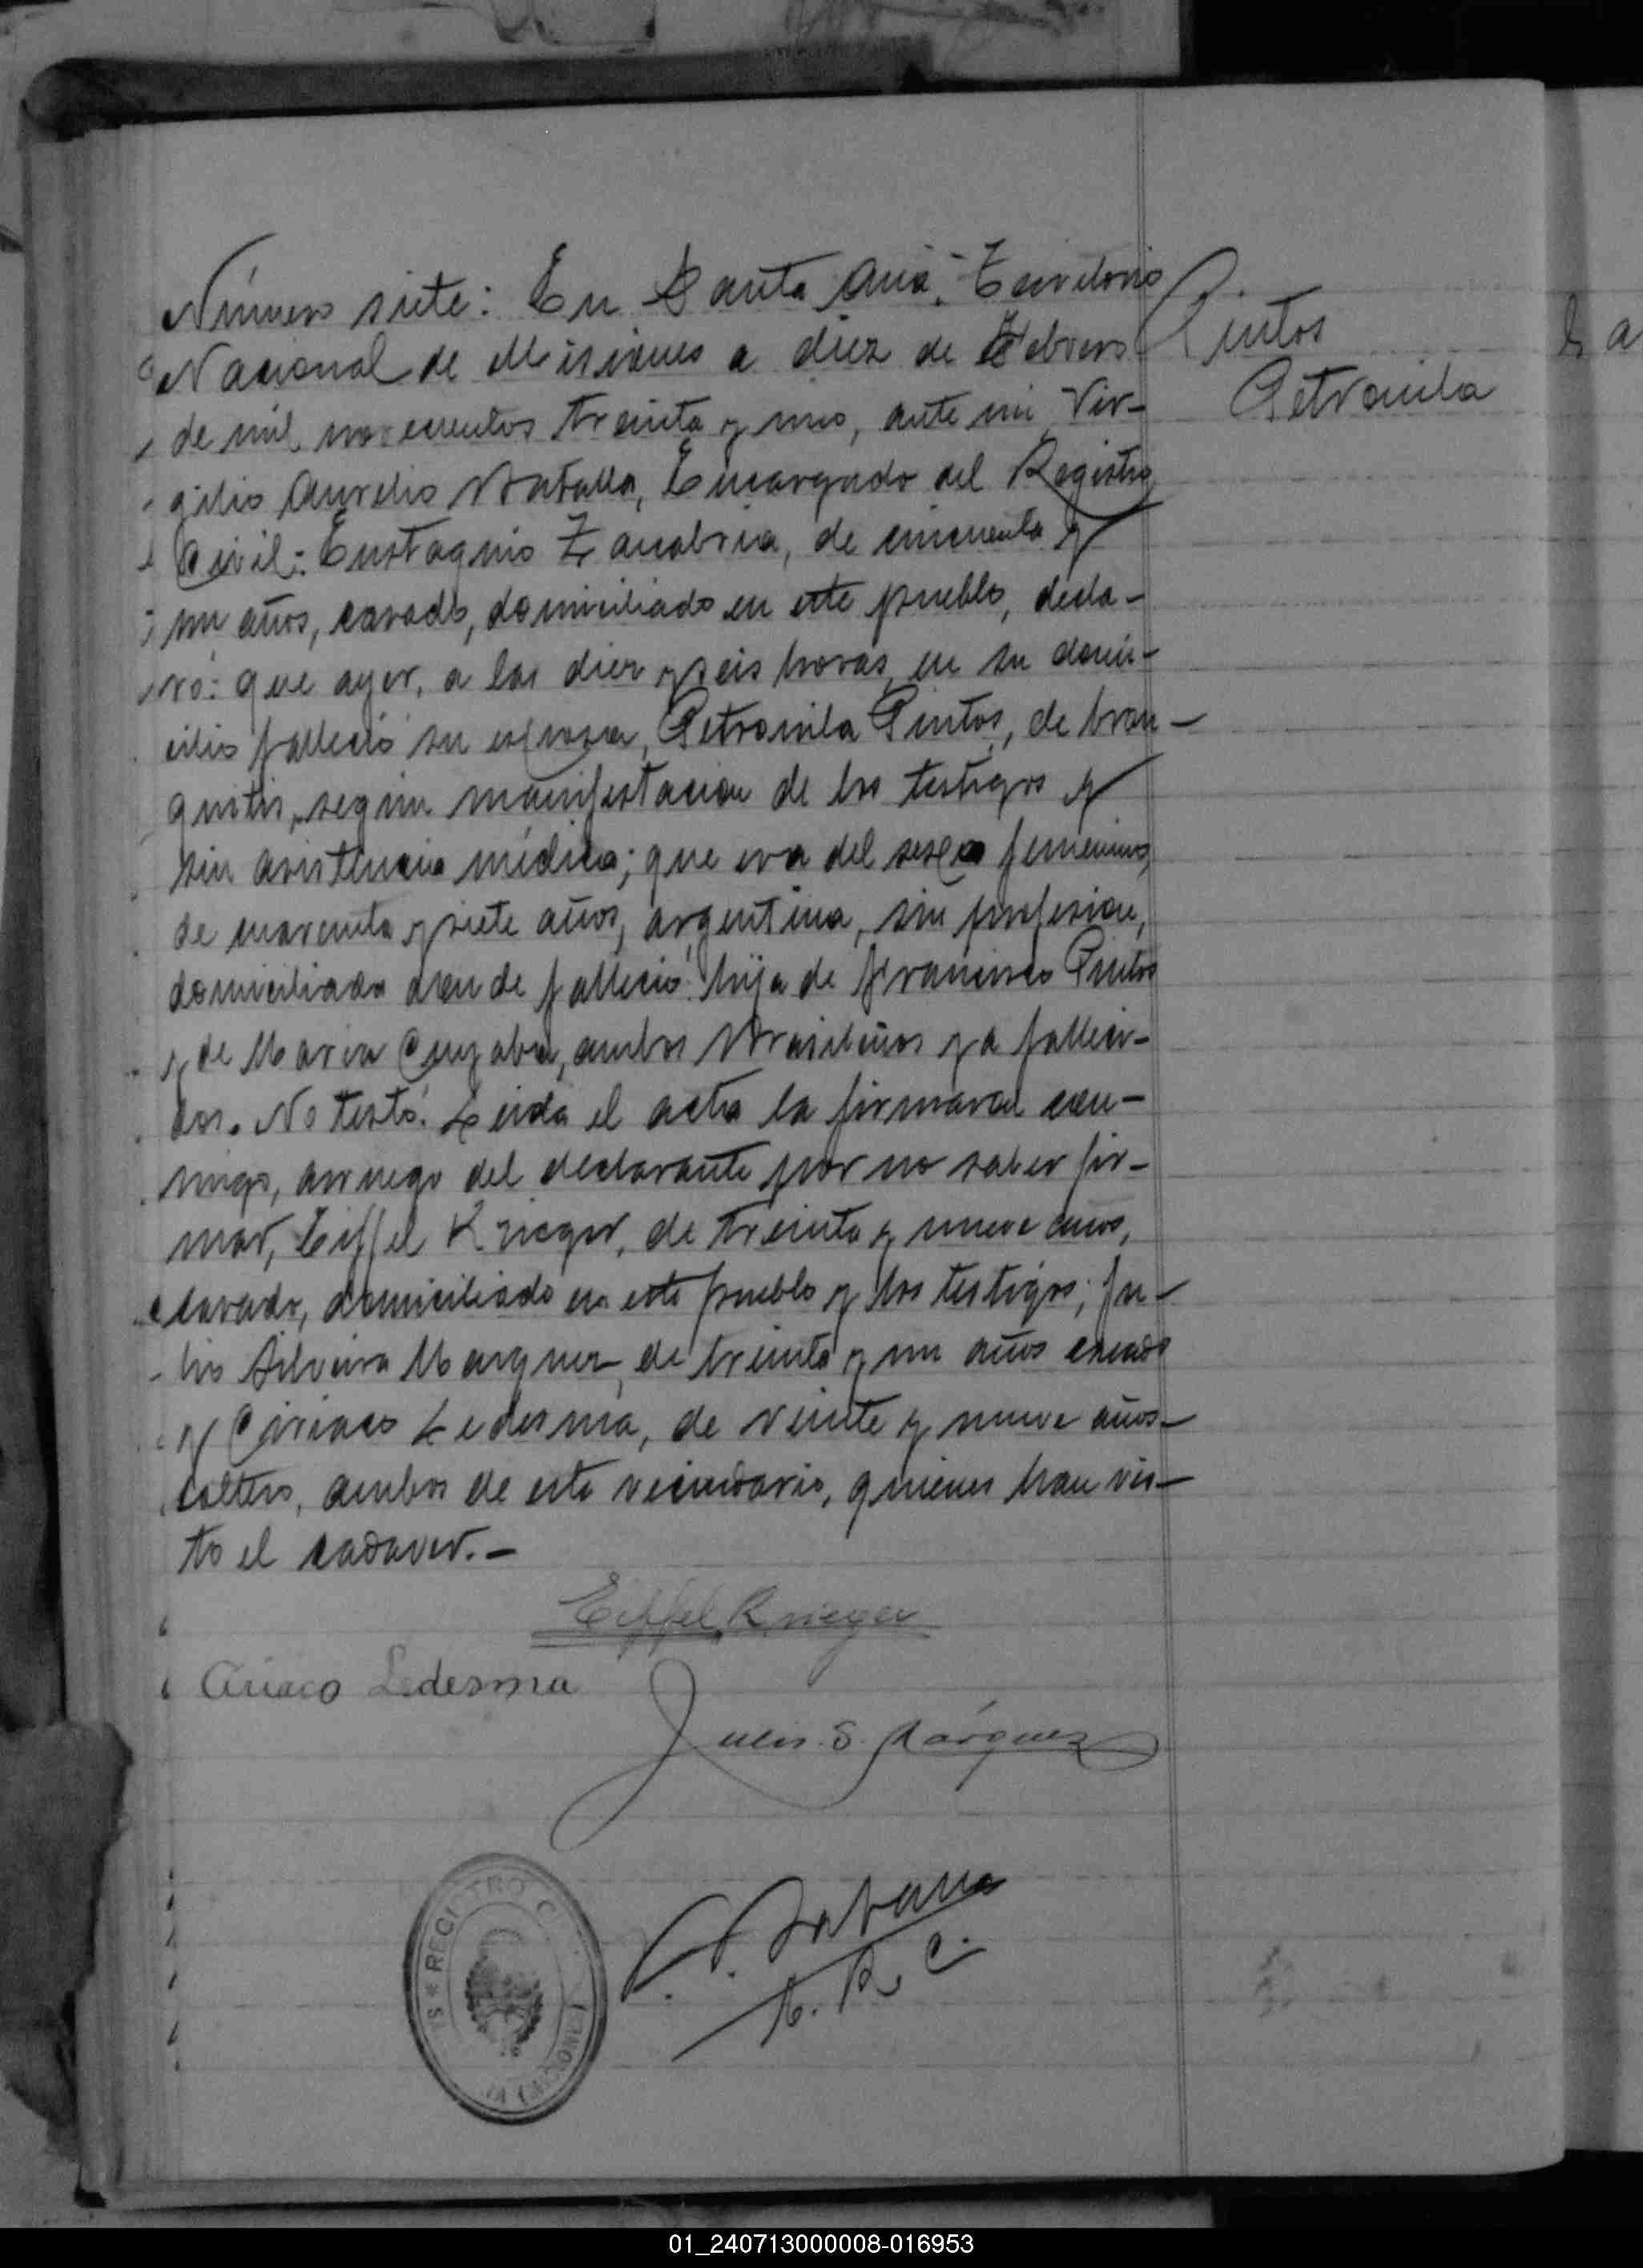 Número siete: En Santa Ana, Territorio
Nacional de Misiones a diez de Febrero
de mil novecientos treinta y uno, ante mi Vir-
gilio Aurelio Batalla, Encargado del Registro
Civil: Eustaquio Zanabria, de cincuenta y
un años, casado, domiciliado en este pueblo, decla-
ró: que ayer, a las diez y seis horas, en su domi-
cilio falleció su esposa, Petronila Pintos, de bron-
quitis, según manifestacion de los testigos y
sin asistencia médica; que era del sexo femenino,
de cuarenta y siete años, argentina, sin profesion,
domiciliada donde falleció: hija de Francisco Pintos
y de Maria ambos Brasileños ya falleci-
dos. No testó. Leida el acta la firmaron con-
migo, a ruego del declarante por no saber fir-
mar, Eiffel Krieger, de treinta y nueve años,
casado, domiciliado en este pueblo y los testigos; Ju-
lio Silveira Marquez, de treinta y un años casado
y Ciriaco Ledesma, de veinte y nueve años
soltero, ambos de este vecindario, quienes han vis-
to el cadaver.-
Pintos
Petronila
Eiffel Krieger
Ciriaco Ledesma
Julio S. Márquez
E. R. C.
REGISTRO C
MISIONES
01_240713000008-016953